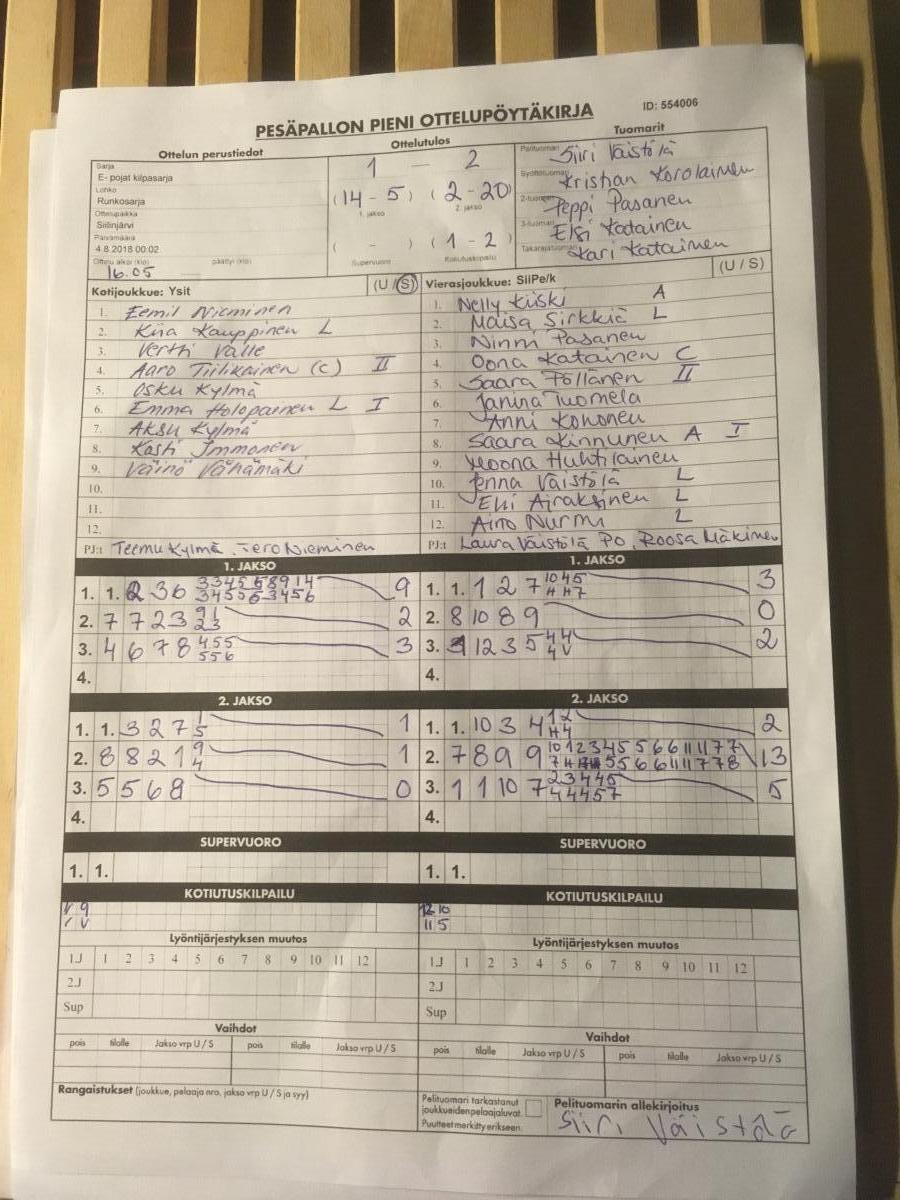 PESÄPALLON PIENI OTTELUPÖYTÄKIRJA ID: 554006
Ottelun perustiedot
Ottelutulos
Tuomarit
Sarja
E- pojat kilpasarja
Lohko
Runkosarja
Ottelupaikka
Siilinjärvi
Päivämäärä
4.8.2018 00:02
Ottelu alkoi (klo) päättyi (klo)
16.05
1 - 2
(14 - 5) (2 - 20)
1. jakso 2. jakso
( - ) (1 - 2)
Supervuoro Kotiutuskilpailu
Pelituomari Siiri Väistölä
Syöttötuomari Kristian Korolainen
2-tuomari Peppi Pasanen
3-tuomari Elsi Katainen
Takarajatuomari Kari Katainen
Kotijoukkue: Ysit (U / S)
1. Eemil Nieminen
2. Kiia Kauppinen L
3. Vertti Valle
4. Aaro Tiilikainen (c) II
5. Osku Kylmä
6. Emma Holopainen L I
7. Aksu Kylmä
8. Kosti Immonen
9. Väinö Vähämäki
10.
11.
12.
PJ:t Teemu Kylmä, Tero Nieminen
Vierasjoukkue: SiiPe/k (U / S)
1. Nelly Kiiski A
2. Maisa Sirkkiä L
3. Ninni Pasanen
4. Oona Katainen C
5. Saara Pöllänen II
6. Janina Tuomela
7. Anni Kononen
8. Saara Kinnunen A I
9. Noona Huhtilainen
10. Jenna Väistölä L
11. Elli Airaksinen L
12. Aino Nurmi L
PJ:t Laura Väistölä PO, Roosa Mäkinen
1. JAKSO
1. 1. 2 3 6 3 3 4 5 5 8 9 1 4 9
3 4 5 5 6 3 4 5 6
2. 7 7 2 3 9 1 2
2 3
3. 4 6 7 8 4 5 5 3
5 5 6
4.
1. JAKSO
1. 1. 1 2 7 10 4 5 3
2. 8 10 8 9 0
3. 12 3 5 4 4 2
4 V
4.
2. JAKSO
1. 1. 3 2 7 1 1
5
2. 8 8 2 1 9 1
4
3. 5 5 6 8 0
4.
2. JAKSO
1. 1. 10 3 4 12 2
2. 7 8 9 9 10 12 3 4 5 5 6 6 11 11 7 7 13
5 5 6 6 11 11 7 7 8
3. 1 1 10 7 2 3 4 4 5 5
4 4 4 5 7
4.
SUPERVUORO
1. 1.
SUPERVUORO
1. 1.
KOTIUTUSKILPAILU
V 9
V
KOTIUTUSKILPAILU
12 10
11 5
Lyöntijärjestyksen muutos
1.J 1 2 3 4 5 6 7 8 9 10 11 12
2.J
Sup
Lyöntijärjestyksen muutos
1.J 1 2 3 4 5 6 7 8 9 10 11 12
2.J
Sup
Vaihdot
pois tilalle Jakso vrp U / S pois tilalle Jakso vrp U / S
Vaihdot
pois tilalle Jakso vrp U / S pois tilalle Jakso vrp U / S
Rangaistukset (joukkue, pelaaja nro, jakso vrp U / S ja syy)
Pelituomari tarkastanut
joukkueiden pelaajaluvat.
Puutteet merkitty erikseen.
Pelituomarin allekirjoitus
Siiri Väistölä